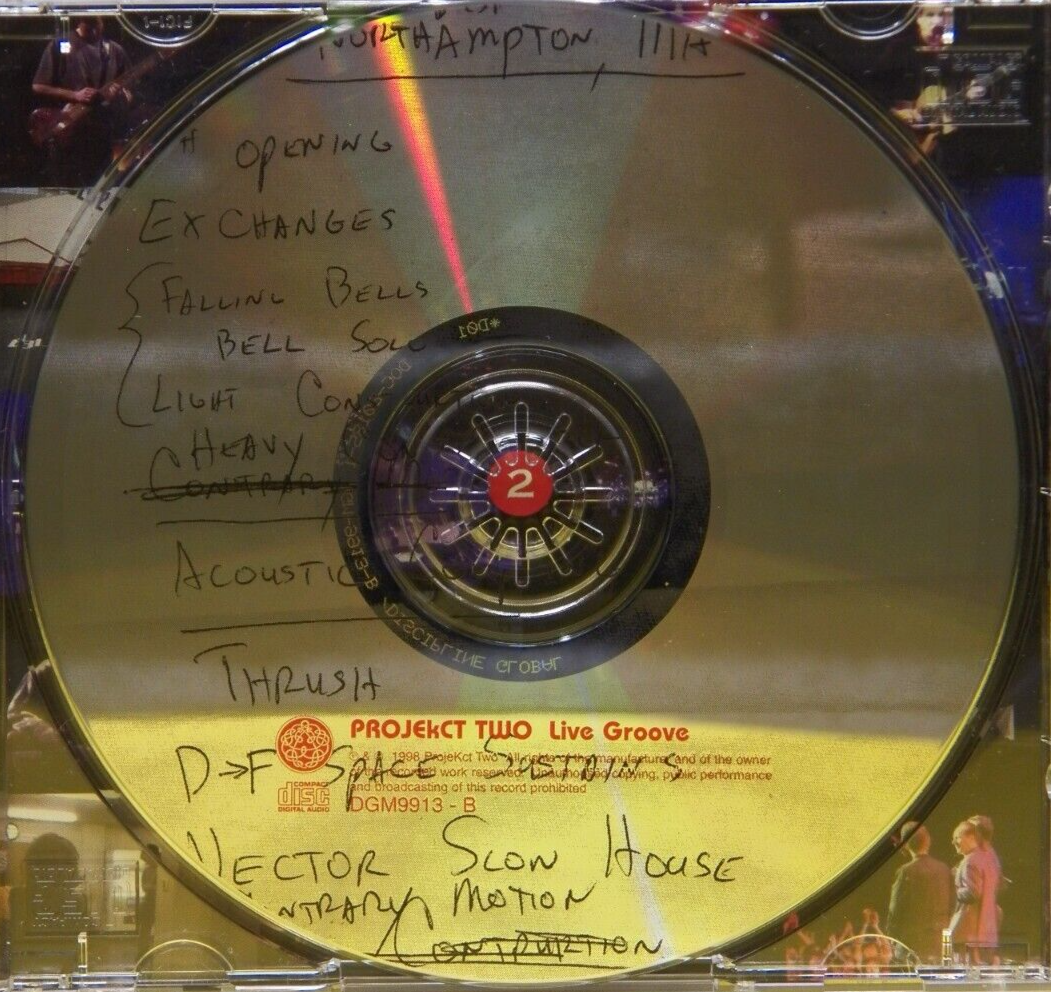 NORTHAMPTON, MA
OPENING
EXCHANGES
FALLING BELLS
BELL
LIGHT
HEAVY
CONTRARY
ACOUSTIC
THRUSH
2
*D01
DISCIPLINE GLOBAL
PROJEKCT TWO Live Groove
℗ & © 1998 ProjeKct Two All rights of the manufacturer and of the owner
of the recorded work reserved. Unauthorised copying, public performance
and broadcasting of this record prohibited
COMPACT
disc
DIGITAL AUDIO
DGM9913 - B
D→F SPACE
VECTOR SLOW HOUSE
CONTRARY MOTION